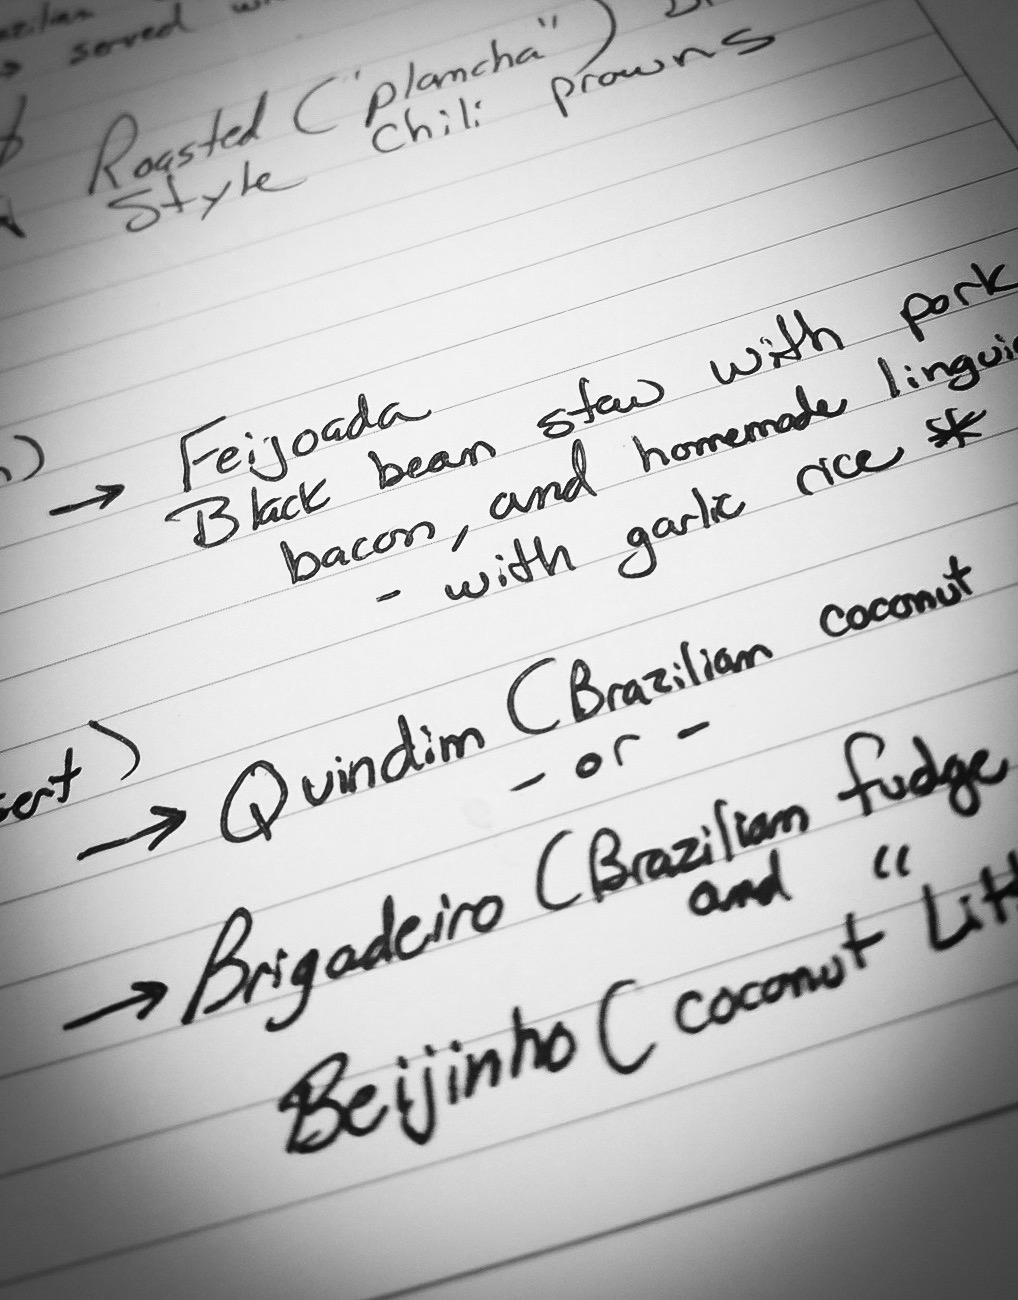 → served
Roasted ("plancha")
Style Chili prawns
→ Feijoada
Black bean stew with pork
bacon, and homemade linguiç
- with garlic rice *
→ Quindim (Brazilian coconut
- or -
→ Brigadeiro (Brazilian fudge
and "
Beijinho (coconut "Litt